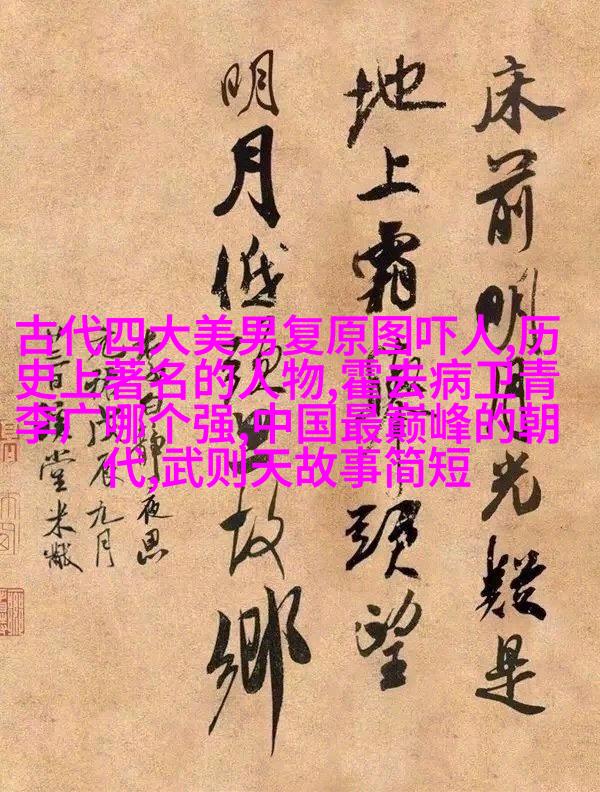 古代四大美男复原图吓人,历
史上著名的人物,霍去病卫青
李广哪个强,中国最巅峰的朝
代,武则天故事简短
床前明月光疑是
地上霜頭望
明月低頭思故鄉
李白靜夜思
元祐戊辰九月
日溪堂米黻